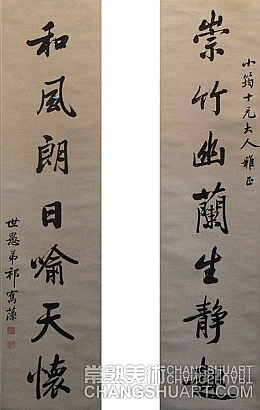 小筠十兄大人雅正
崇竹幽蘭生靜
和風朗日喻天懷
世愚弟祁寯藻
常熟美術 CHANGSHUART
CHANGSHUART.COM